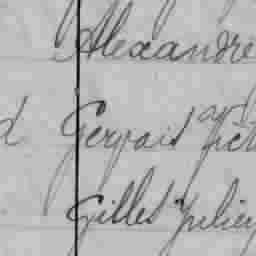 Alexandre
d Gervais Vict
Gilles Julien